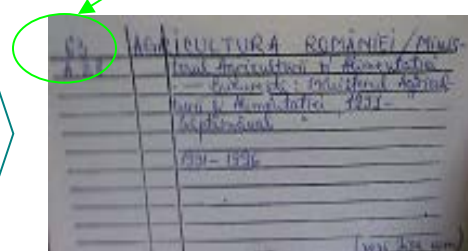 AGRICULTURA ROMÂNIEI / Minis-
terul Agriculturii și Alimentației
București : Ministerul Agricul-
turii și Alimentației, 1991-
Săptămânal
1991 - 1996